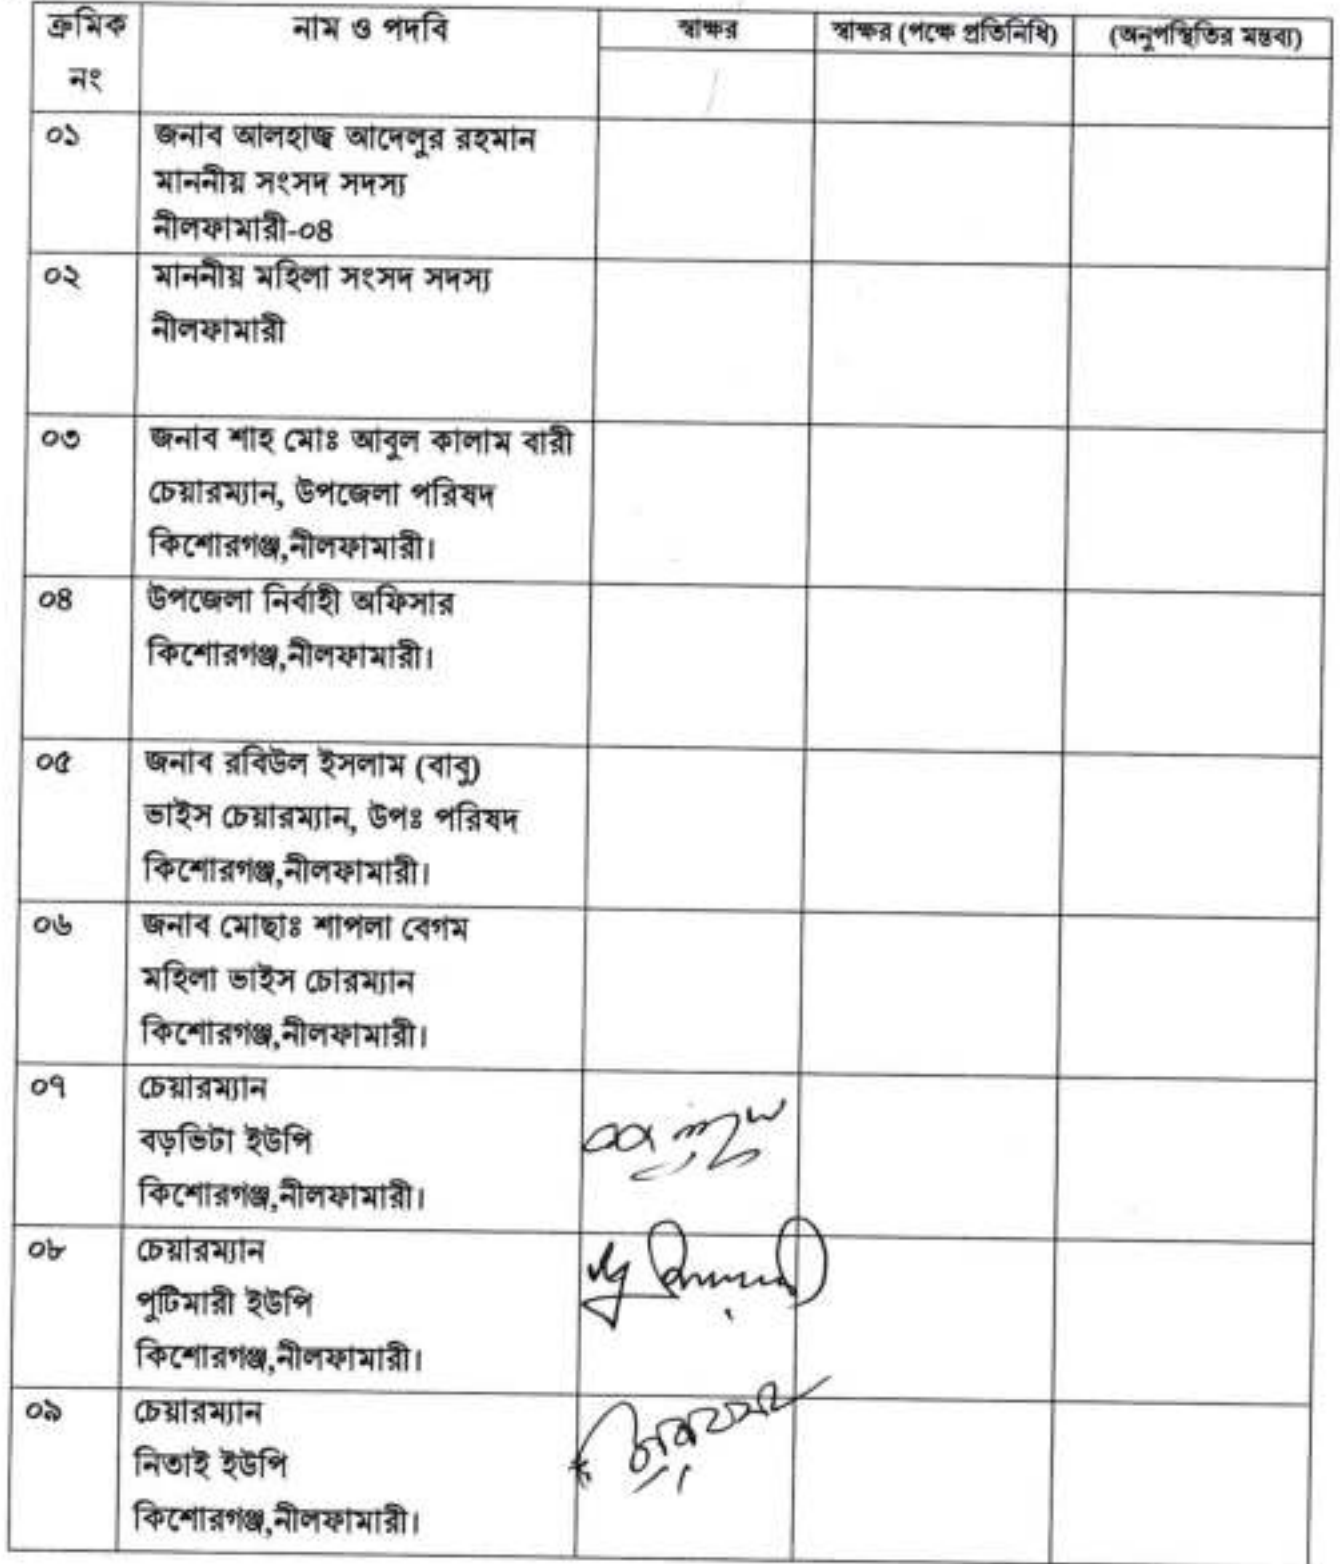 ক্রমিক নং নাম ও পদবি স্বাক্ষর স্বাক্ষর (পক্ষে প্রতিনিধি) (অনুপস্থিতির মন্তব্য)
০১ জনাব আলহাজ্ব আদেলুর রহমান
মাননীয় সংসদ সদস্য
নীলফামারী-০৪
০২ মাননীয় মহিলা সংসদ সদস্য
নীলফামারী
০৩ জনাব শাহ মোঃ আবুল কালাম বারী
চেয়ারম্যান, উপজেলা পরিষদ
কিশোরগঞ্জ,নীলফামারী।
০৪ উপজেলা নির্বাহী অফিসার
কিশোরগঞ্জ,নীলফামারী।
০৫ জনাব রবিউল ইসলাম (বাবু)
ভাইস চেয়ারম্যান, উপঃ পরিষদ
কিশোরগঞ্জ,নীলফামারী।
০৬ জনাব মোছাঃ শাপলা বেগম
মহিলা ভাইস চোরম্যান
কিশোরগঞ্জ,নীলফামারী।
০৭ চেয়ারম্যান
বড়ভিটা ইউপি
কিশোরগঞ্জ,নীলফামারী।
০৮ চেয়ারম্যান
পুটিমারী ইউপি
কিশোরগঞ্জ,নীলফামারী।
০৯ চেয়ারম্যান
নিতাই ইউপি
কিশোরগঞ্জ,নীলফামারী।